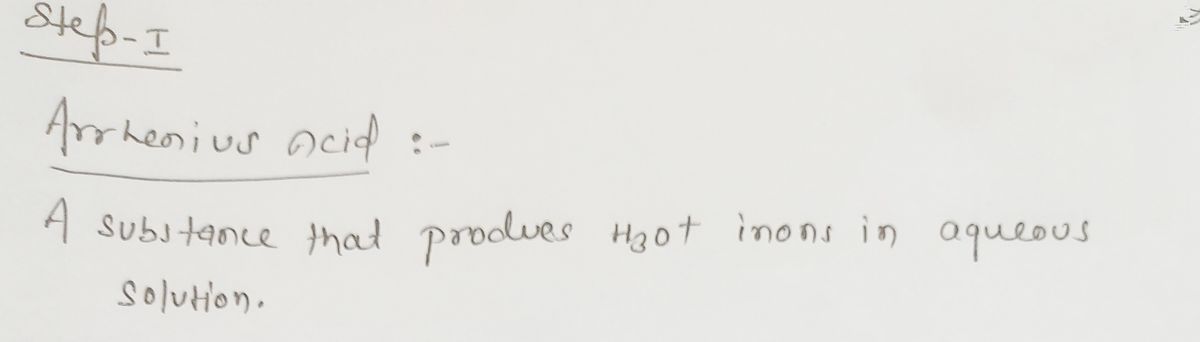 Step-I
Arrhenius acid :-
A substance that produes H3O+ inons in aqueous
solution.